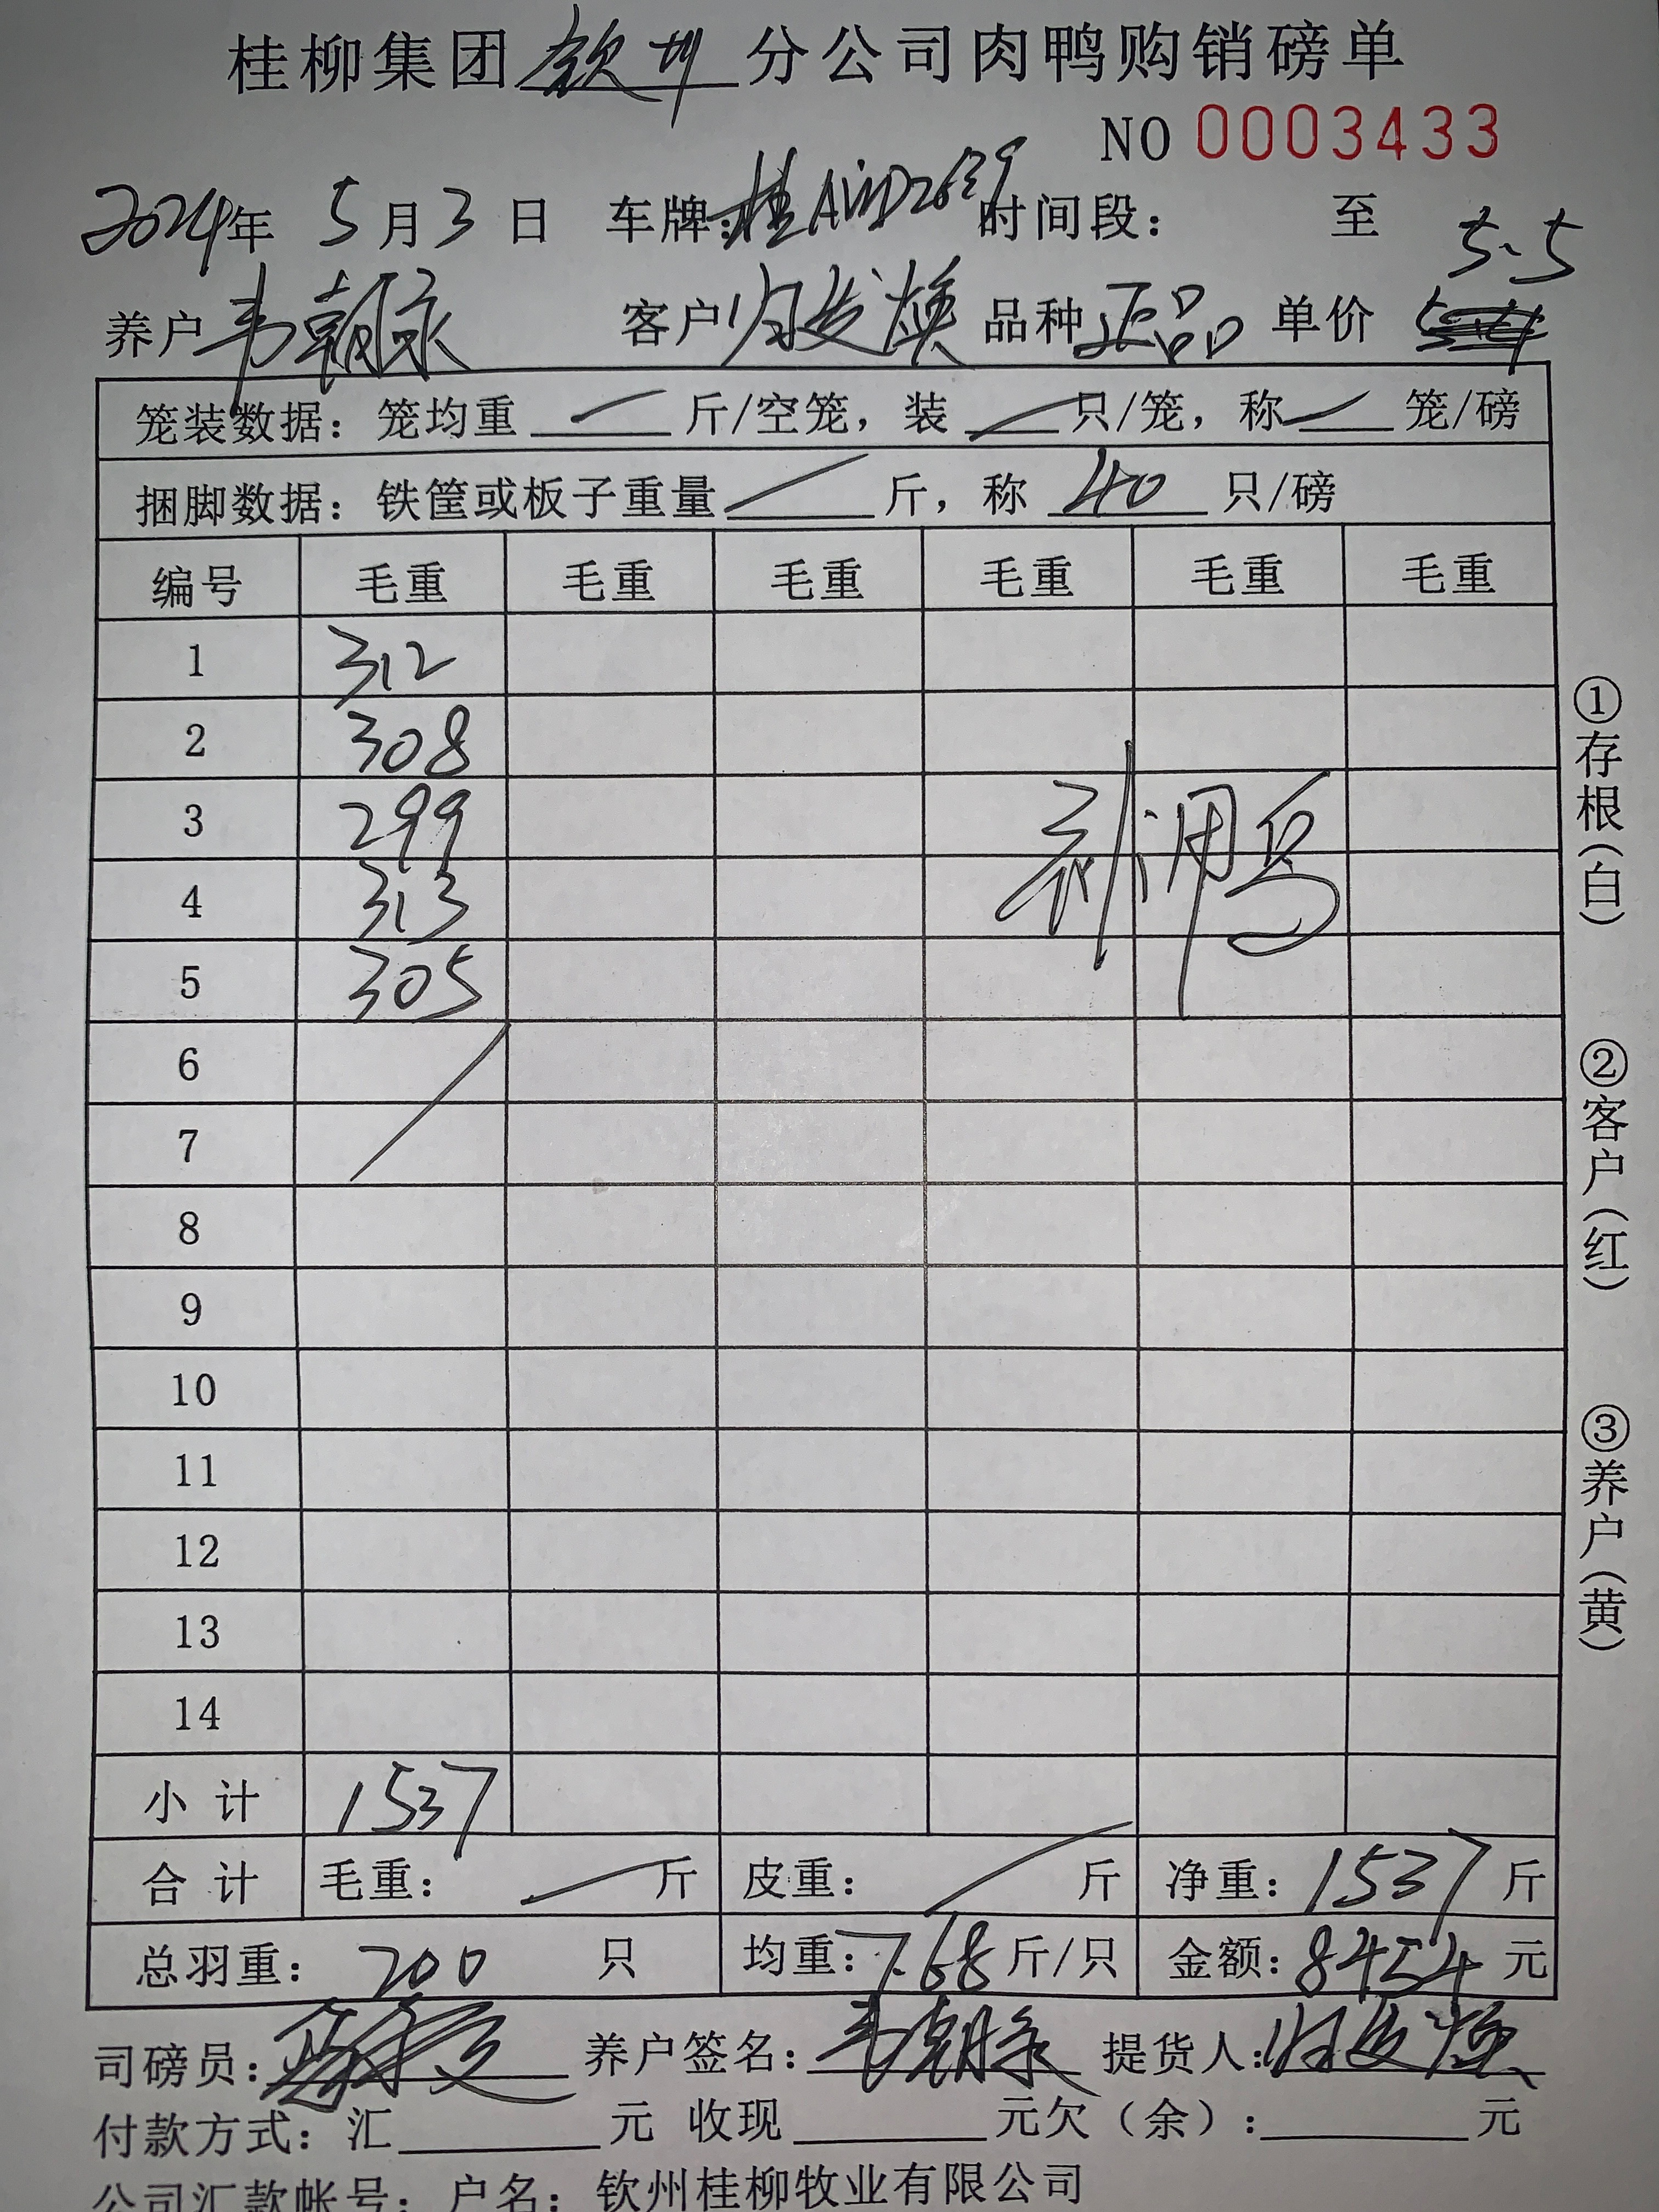 桂柳集团钦州分公司肉鸭购销磅单
NO 0003433
2024年 5月3日 车牌:桂A 时间段: 至
5.5
养户韦朝 客户 品种正品 单价
笼装数据: 笼均重 斤/空笼, 装 只/笼, 称 笼/磅
捆脚数据: 铁筐或板子重量 斤, 称 40 只/磅
编号 毛重 毛重 毛重 毛重 毛重 毛重
1 312
2 308
3 299
4 313
5 305
6
7
8
9
10
11
12
13
14
小计 1537
合计 毛重: 斤 皮重: 斤 净重: 1537 斤
总羽重: 200 只 均重: 7.68 斤/只 金额: 8454 元
司磅员: 养户签名: 韦朝 提货人:
付款方式: 汇 元 收现 元欠(余): 元
公司汇款帐号: 户名: 钦州桂柳牧业有限公司
①存根(白)
②客户(红)
③养户(黄)